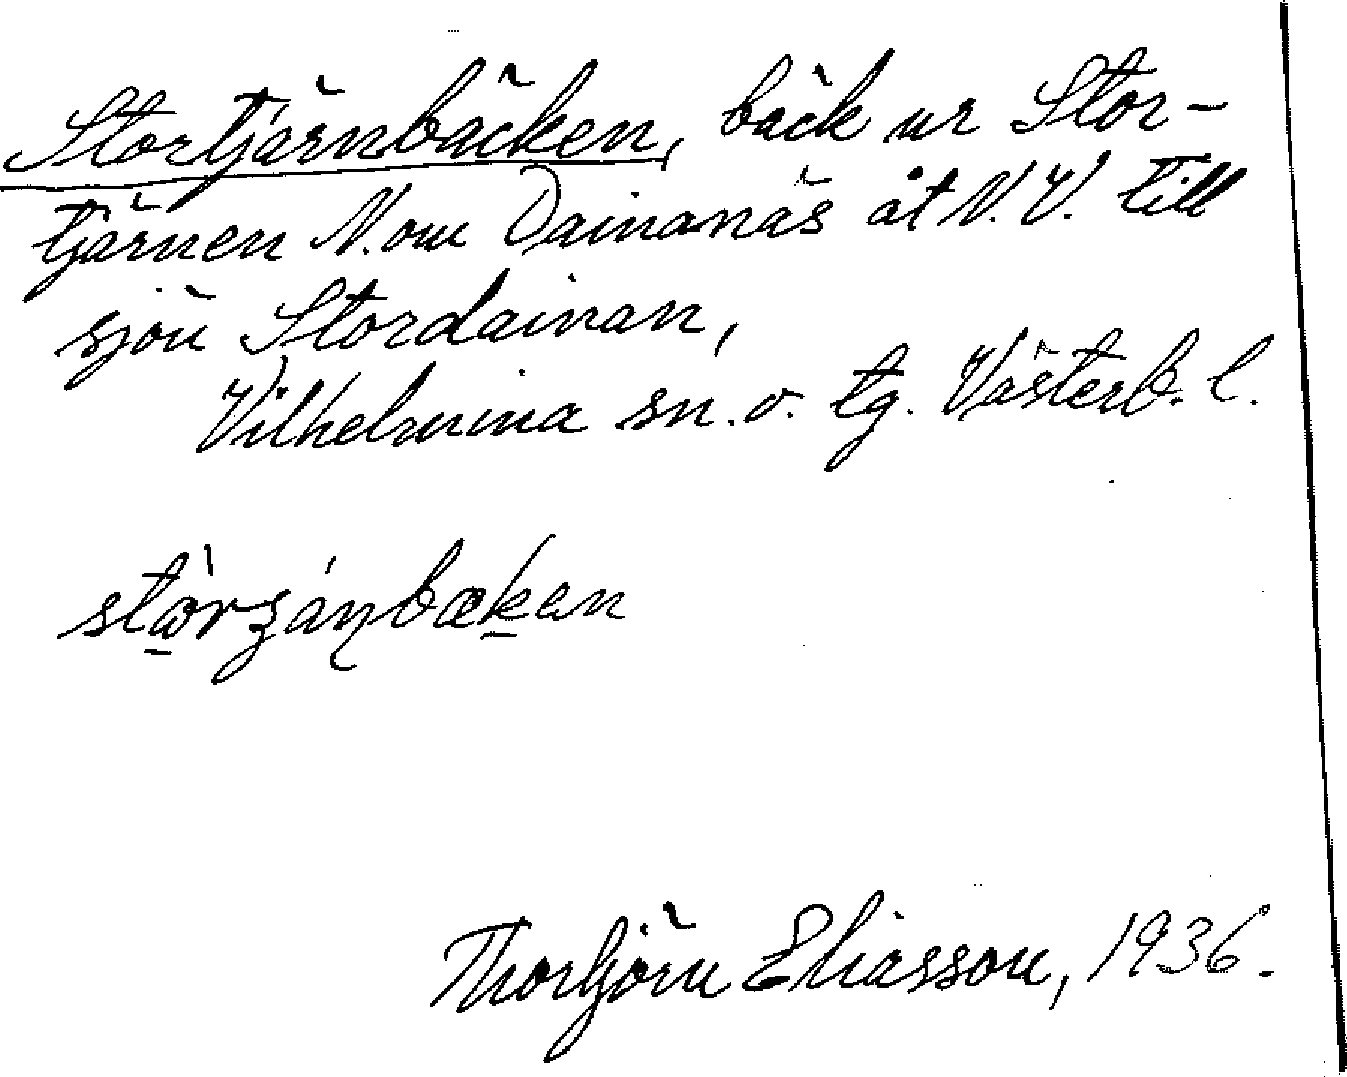 Stortjärnbäcken, bäck ur Stor-
tjärnen N. om Dainanäs åt N.V. till
sjön Stordainan,
Vilhelmina sn. o. tg. Västerb. l.
Thorbjörn Eliasson, 1936.